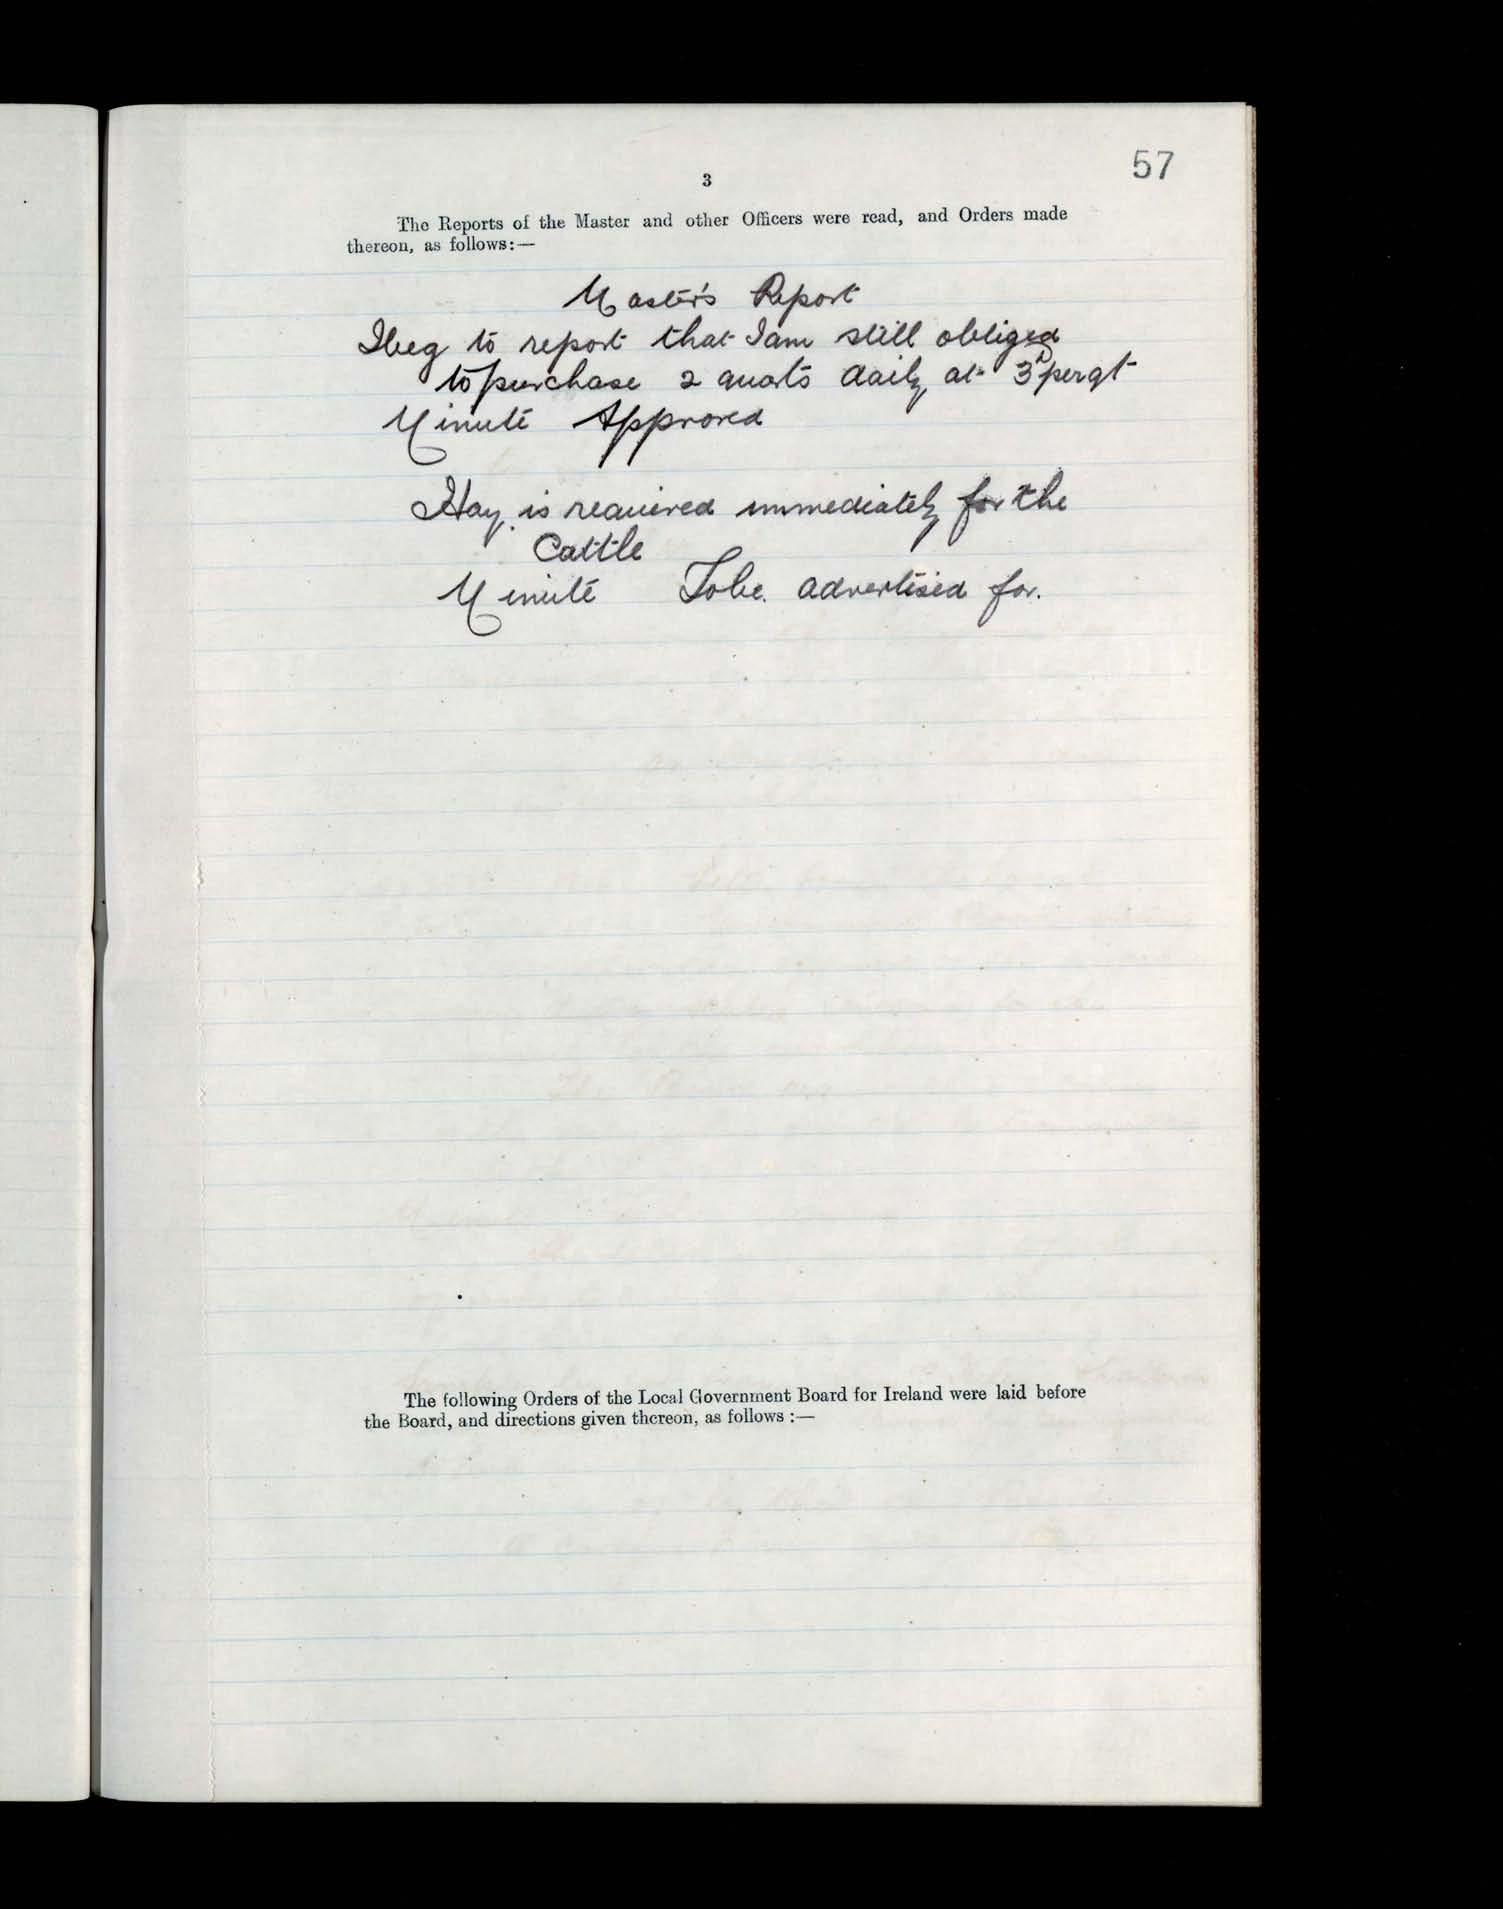 57
3
The Reports of the Master and other Officers were read, and Orders made
thereon, as follows:—
Master's Report
I beg to report that I am still obliged
to purchase 2 quarts daily at 3d per qt
Minute Approved
Hay is required immediately for the
Cattle
Minute To be advertised for.
The following Orders of the Local Government Board for Ireland were laid before
the Board, and directions given thereon, as follows :—